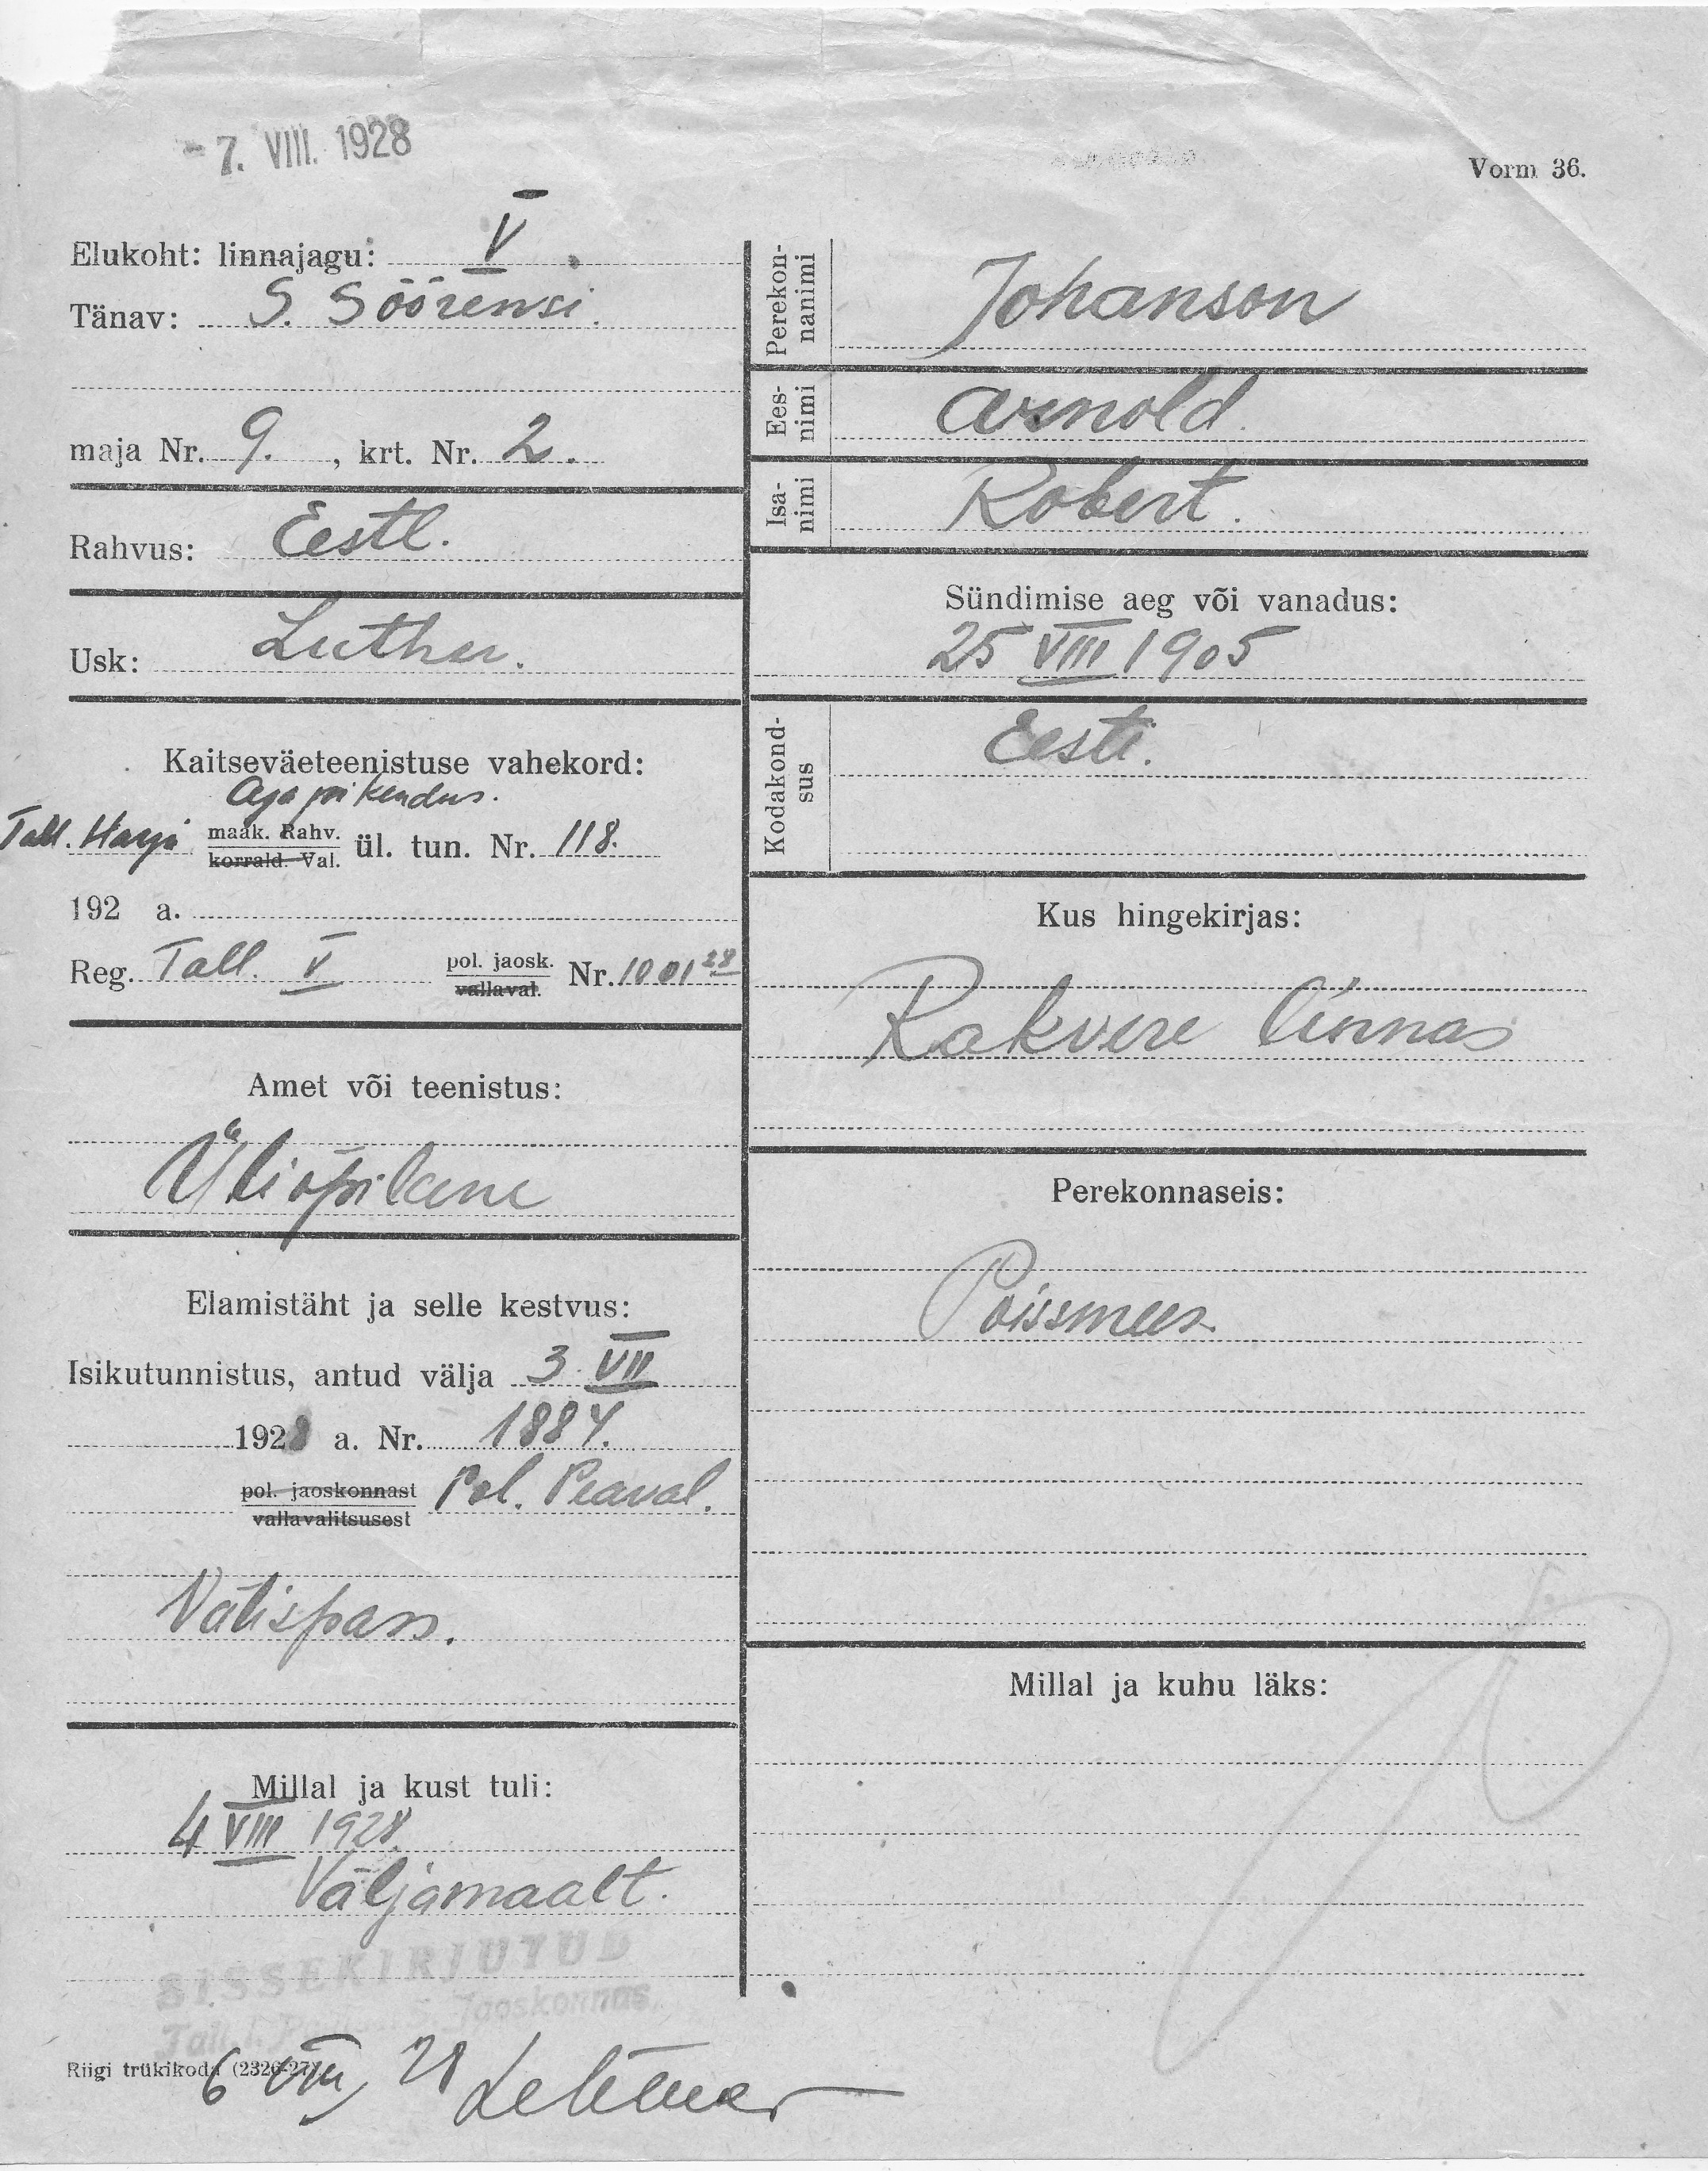 - 7. VIII. 1928
Vorm 36.
Elukoht: linnajagu: V
Tänav: S. Söörensi.
maja Nr. 9. , krt. Nr. 2.
Rahvus: Eestl.
Usk: Luther.
Kaitseväeteenistuse vahekord:
Aja pikendus.
Tall. Harju maak. Rahv. ül. tun. Nr. 118.
korrald. Val.
192 a.
Reg. Tall. V pol. jaosk. Nr. 1001 28
vallaval.
Amet või teenistus:
Üliõpilane
Elamistäht ja selle kestvus:
Isikutunnistus, antud välja 3 VII
1928 a. Nr. 1884.
pol. jaoskonnast Pol. Peaval.
vallavalitsusest
Välispass.
Millal ja kust tuli:
4 VIII 1928.
Väljamaalt.
SISSEKIRJUTUD
Tall. Jaoskonnas
Riigi trükikoda (2326-27)
6 VIII 28
Perekon-
nanimi
Johanson
Ees-
nimi
Arnold.
Isa-
nimi
Robert.
Sündimise aeg või vanadus:
25 VIII 1905
Kodakond-
sus
Eesti.
Kus hingekirjas:
Rakvere linnas
Perekonnaseis:
Poissmees
Millal ja kuhu läks: